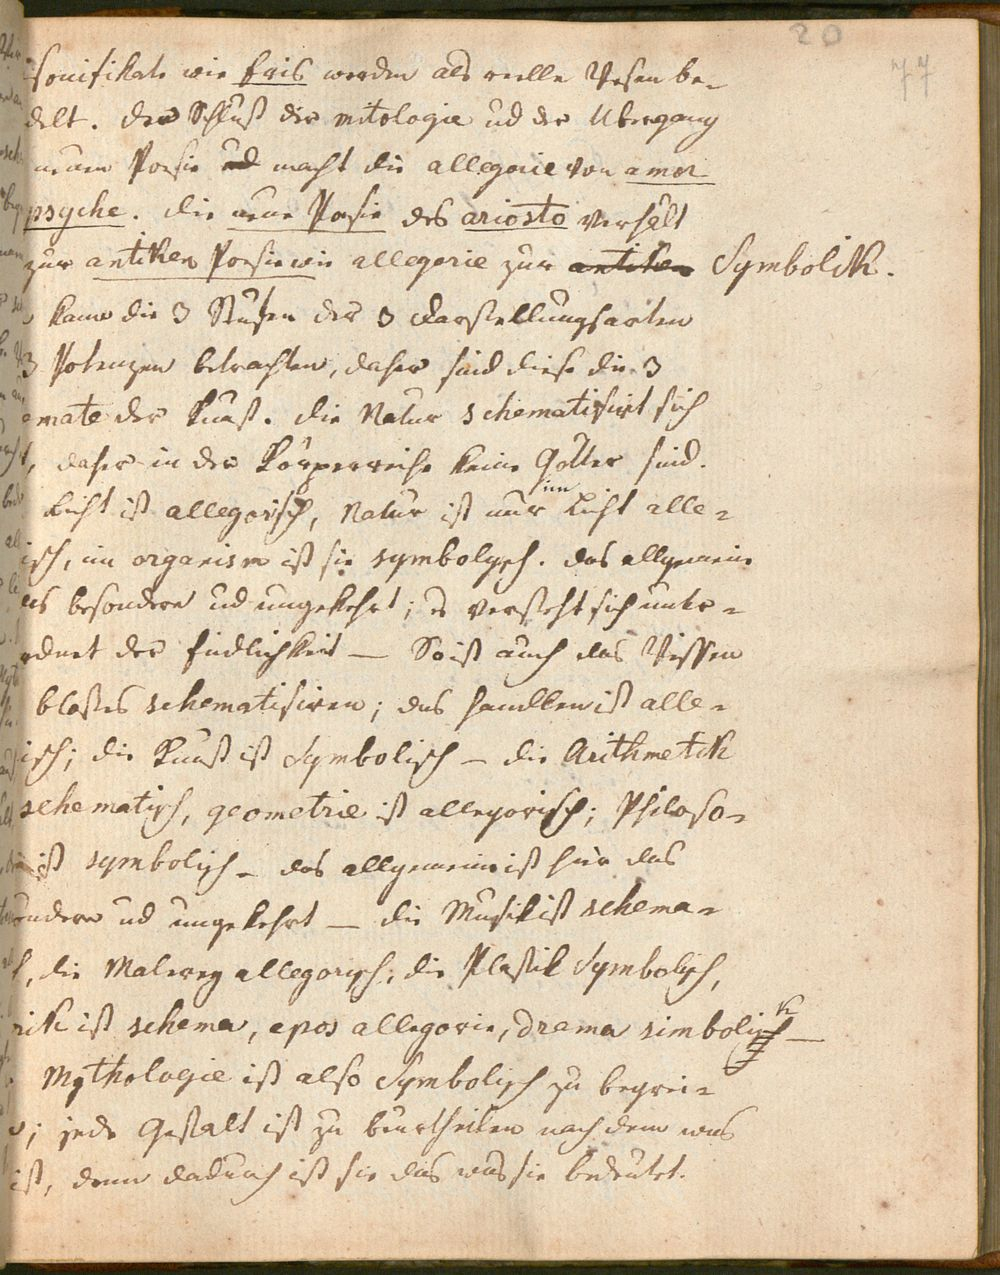 20
77
sonifikate wie Eris werden als reelle Wesen be-
delt. Der Schluß der mitologie ud der Ubergang
neuen Poesie ud macht die allegorie von amor
psyche. die neue Poesie des ariosto verhält
zur antiken Poesie wie allegorie zur antiken Symbolik.
kann die 3 Stufen der 3 darstellungsarten
3 Potenzen betrachten, daher sind diese die 3
emate der Kunst. die Natur schematisirt sich
, daher in der Körperreihe keine Götter sind.
Licht ist allegorisch, Natur ist nur im Licht alle-
isch, im organism ist sie symbolysch. das allgemeine
as besondere ud umgekehrt; es versteht sich unter-
rdnet der Endlichkeit — So ist auch das Wissen
bloßes schematisiren; das handlen ist alle-
isch; die Kunst ist Symbolisch — die Arithmetik
schematisch, geometrie ist allegorisch; Philoso-
ie ist symbolisch — das allgemeine ist hier das
sondere ud umgekehrt — die Musik ist schema-
h, die Malerey allegorisch, die Plastik Symbolisch,
rik ist schema, epos allegorie, drama simbolik —
Mythologie ist also Symbolisch zu begrei-
; jede Gestalt ist zu beurtheilen nach dem was
ist, denn dadurch ist sie das was sie bedeutet.